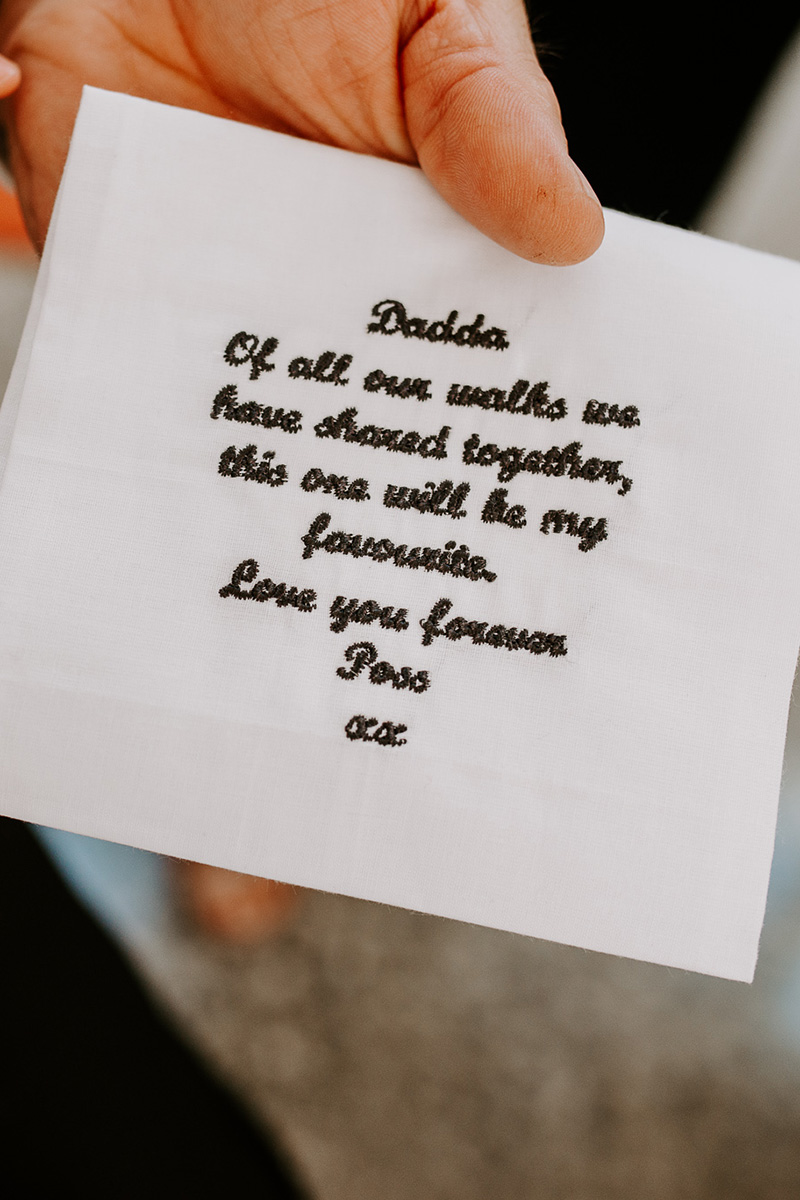 Dadda
Of all our walks we
have shared together,
this one will be my
favourite.
Love you forever
Poss
xx